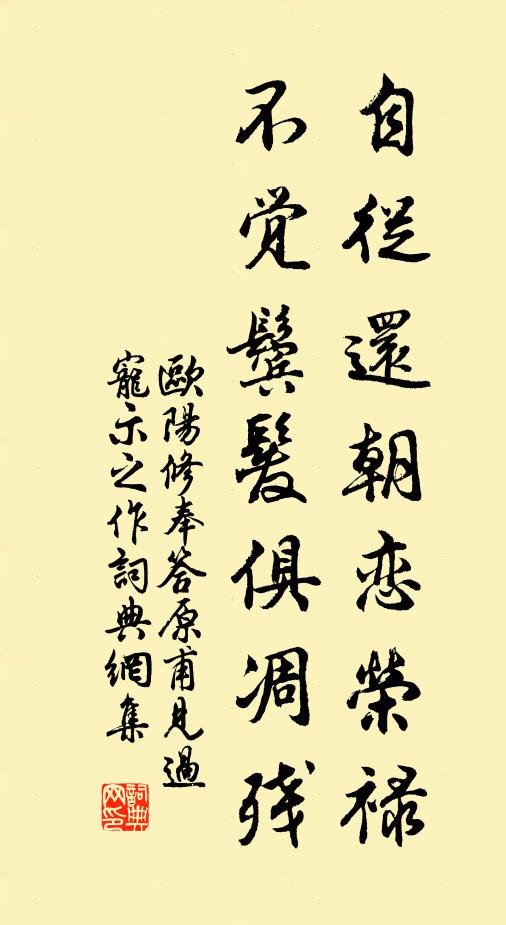 自從還朝恋榮禄
不覚鬓髮俱凋残
歐陽修奉答原甫見過
寵示之作詞典網集
詞典
网印